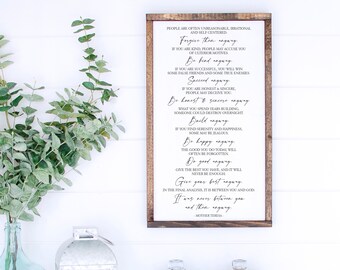 PEOPLE ARE OFTEN UNREASONABLE, IRRATIONAL
AND SELF-CENTERED.
Forgive them anyway.
IF YOU ARE KIND, PEOPLE MAY ACCUSE YOU
OF ULTERIOR MOTIVES.
Be kind anyway.
IF YOU ARE SUCCESSFUL, YOU WILL WIN
SOME FALSE FRIENDS AND SOME TRUE ENEMIES.
Succeed anyway.
IF YOU ARE HONEST & SINCERE,
PEOPLE MAY DECEIVE YOU.
Be honest & sincere anyway.
WHAT YOU SPEND YEARS BUILDING,
SOMEONE COULD DESTROY OVERNIGHT.
Build anyway.
IF YOU FIND SERENITY AND HAPPINESS,
SOME MAY BE JEALOUS.
Be happy anyway.
THE GOOD YOU DO TODAY, WILL
OFTEN BE FORGOTTEN.
Do good anyway.
GIVE THE BEST YOU HAVE, AND IT WILL
NEVER BE ENOUGH.
Give your best anyway.
IN THE FINAL ANALYSIS, IT IS BETWEEN YOU AND GOD.
It was never between you
and them anyway.
MOTHER TERESA